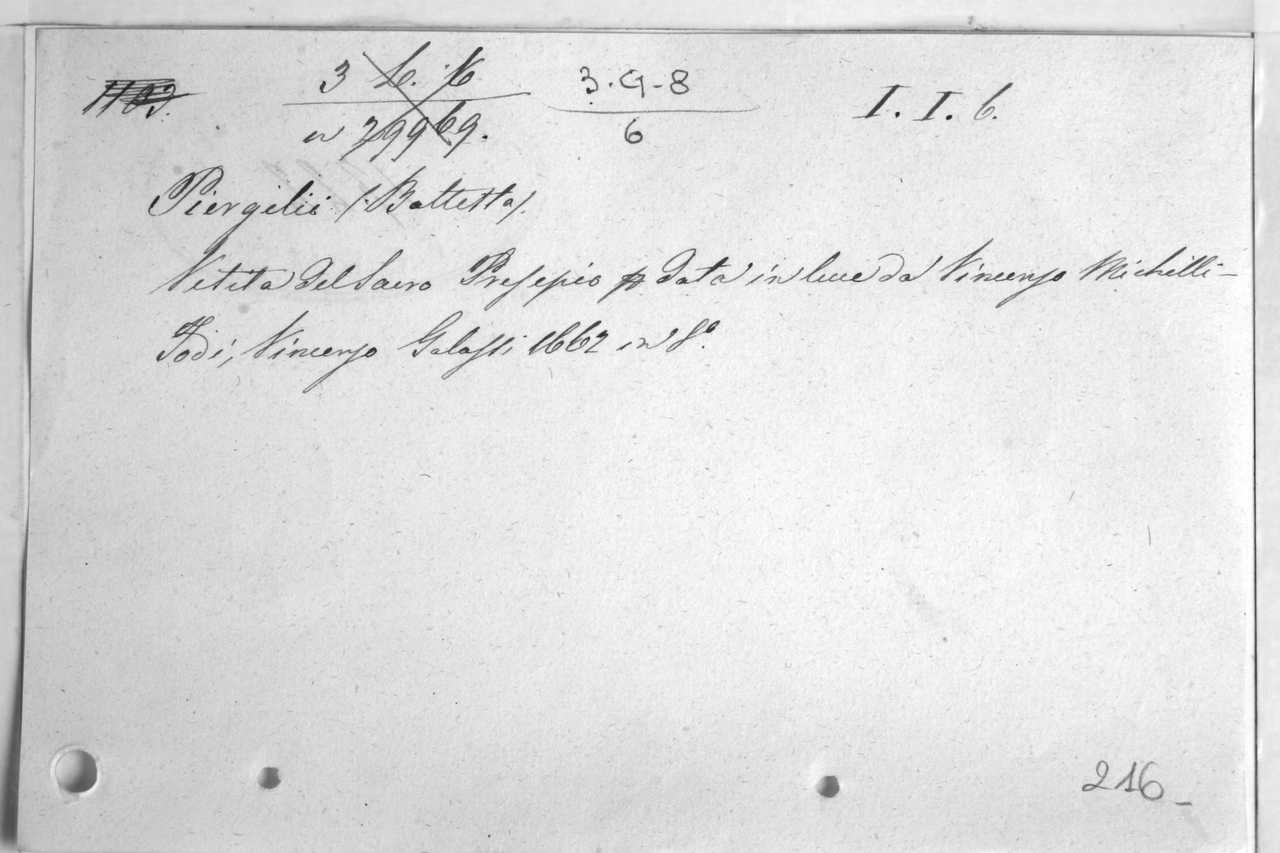 1103.
3 L. K
3.G-8
I. I. 6.
n 29969.
6
Piergilii (Battetta).
Vitita del Sacro Presepio data in luce da Vincenzo Michelli-
Todi, Vincenzo Galassi 1662 in 8º.
216-